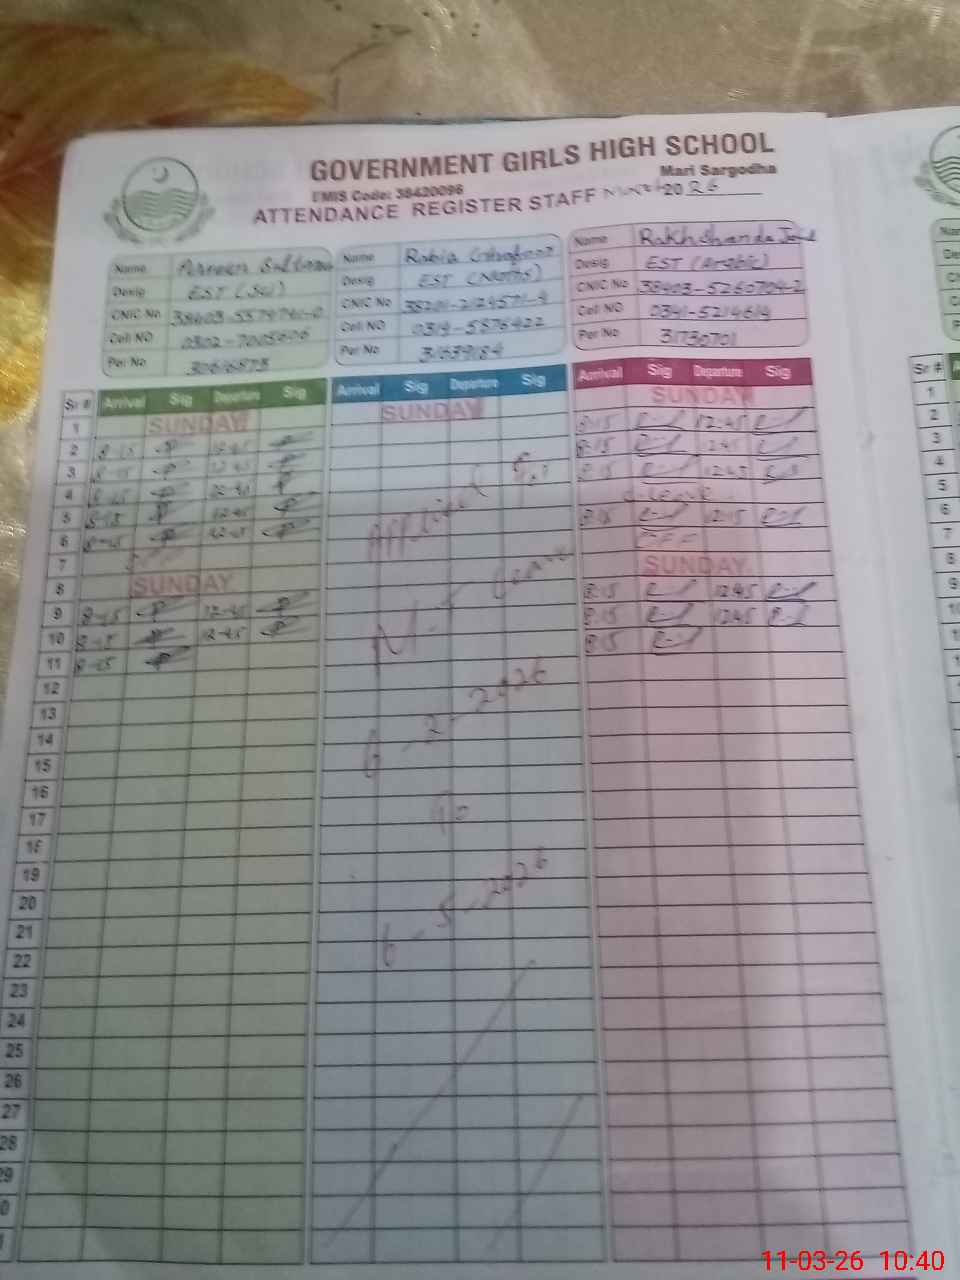 GOVERNMENT GIRLS HIGH SCHOOL
Mari Sargodha
EMIS Code: 38420096
ATTENDANCE REGISTER STAFF March 2026
Name Parveen Sultana
Desig EST (Sci)
CNIC No
Cell NO 0302-7005606
Per No
Name Rabia
Desig EST (Maths)
CNIC No
Cell NO 0314-5576422
Per No 31639184
Name Rakhshanda
Desig EST (Arabic)
CNIC No 38403-5260704-2
Cell NO 0341-5214614
Per No 31730701
Sr # Arrival Sig Departure Sig Arrival Sig Departure Sig Arrival Sig Departure Sig
1 SUNDAY SUNDAY SUNDAY
2 8-15 12-45 8:15 12:45
3 8-15 12-45 8:15 12:45
4 8-15 8:15 12:45
5 8-15 12-45 leave
6 8-15 8:15 12:15
7 OFF
8 SUNDAY SUNDAY
9 8-15 12-45 8:15 12:45
10 8-15 12-45 8:15 12:45
11 8-15 8:15
Applied For
M-T leave
6-2-2026
To
6-5-2026
12
13
14
15
16
17
18
19
20
21
22
23
24
25
26
27
28
Sr #
1
2
3
4
5
6
7
8
9
11-03-26 10:40